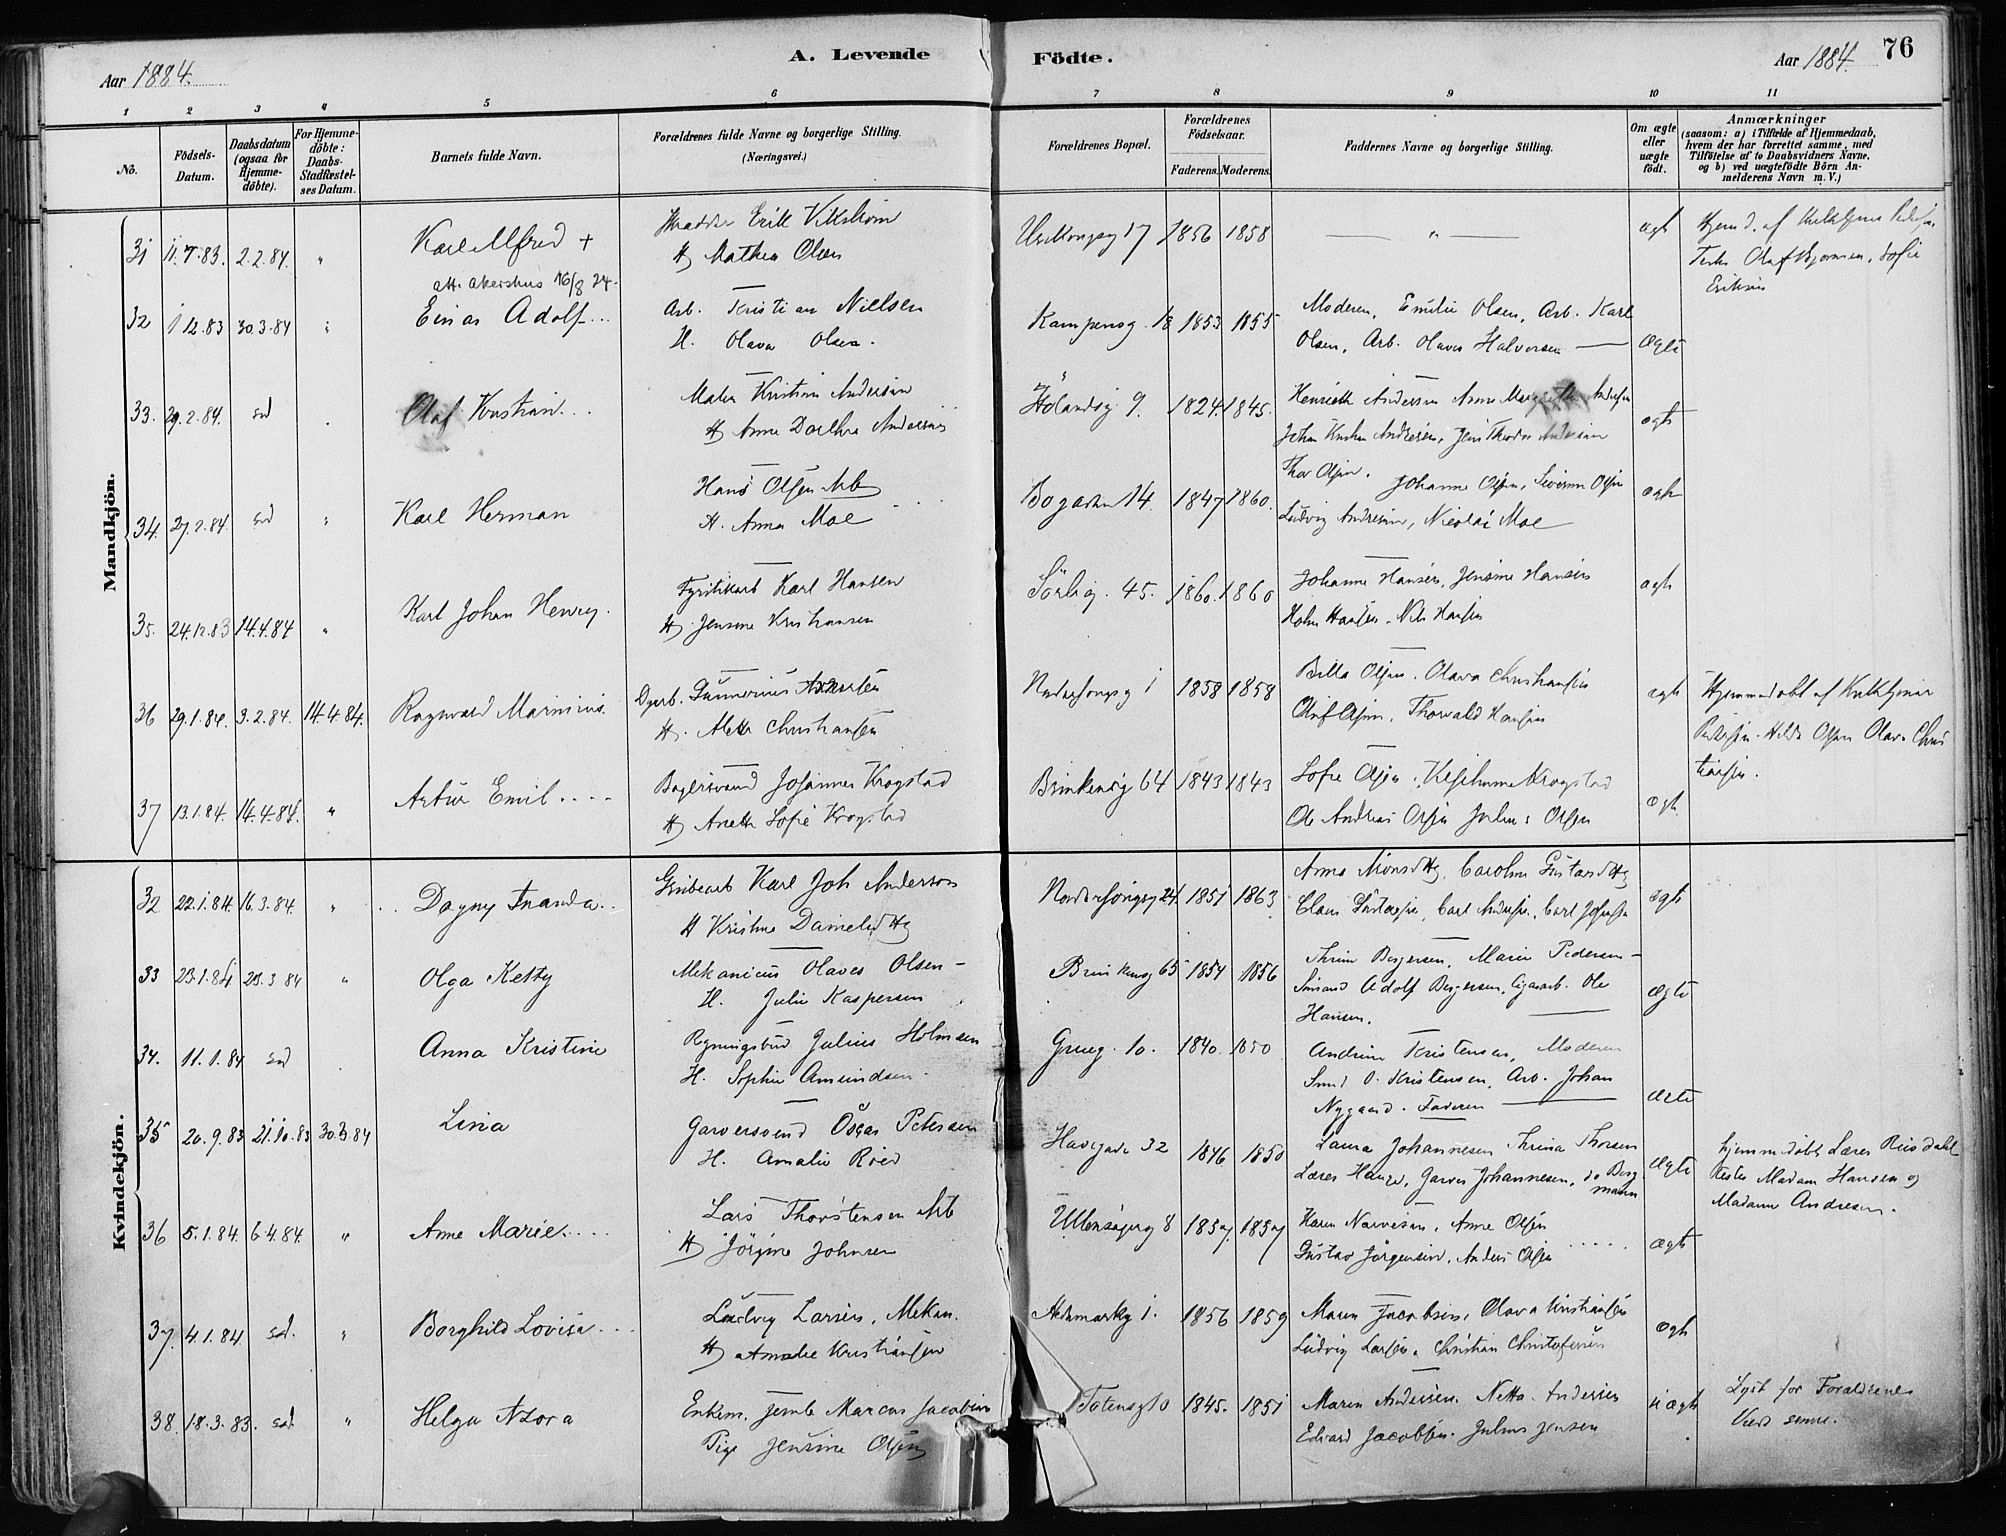 Aar 1884.
A. Levende
Födte.
Aar 1884.
76
1 2 3 4 5 6 7 8 9 10 11
No.
Födsels-
Datum.
Daabsdatum
(ogsaa for
Hjemme-
döbte).
For Hjemme-
döbte:
Daabs-
Stadfæstel-
ses Datum.
Barnets fulde Navn.
Forældrenes fulde Navne og borgerlige Stilling.
(Næringsvei.)
Forældrenes Bopæl.
Forældrenes
Födselsaar.
Faderens. Moderens.
Faddernes Navne og borgerlige Stilling.
Om ægte
eller
uægte
födt.
Anmærkninger
(saasom: a) i Tilfælde af Hjemmedaab,
hvem der har forrettet samme, med
Tilföielse af to Daabsvidners Navne,
og b) ved uægtefödte Börn An-
melderens Navn m. V.)
Mandkjön.
31 11.7.83. 2.2.84. " Karl Alfred +
Erik Vikström
H Mathea Olsen
17 1856 1858 — " — ægt
Olaf Bjørnsen, Sofie
att. Akershus 16/8 24.
32 1 12.83 30.3.84 " Einar Adolf
Arb. Kristian Nielsen
H. Olava Olsen.
Kampensg. 18 1853 1855
Moderen, Emilie Olsen, Arb. Karl
Olsen, Arb. Olaves Halvorsen —
Ægte
33. 29.2.84. sod Olaf Kristian
Maler Kristian Andersen
H Anne Dorthea Andersen
Hölandsg. 9. 1824. 1845.
Henriette Andersen Anne Margrethe Andersen
Johan Andresen, Jens Theodor Andersen
ægt
34. 27.2.84. sod " Karl Herman
Hans Olsen Arb
H. Anna Moe
Bogaden 14. 1847 1860.
Thor Olsen. Johanne Olsen, Severine Olsen
Ludvig Andresen, Nicolai Moe
ægt
35. 24.12.83 14.4.84 " Karl Johan Henry.
Fyrstikarb Karl Hansen
H. Jensine Kristiansen
Sörlig. 45. 1860. 1860
Johanne Hansen, Jensine Hansen
Holm Hansen. Nils Hansen
ægt
36 29.1.84. 3.2.84. 14.4.84. Ragnvald Marinius.
Gunnerius
H. Mette Christiansen
1 1858 1858
Olsen. Olava Christiansen
Oluf Olsen, Thorvald Hansen
ægt
Hjemmedöbt af
Pedersen. Hilda Olsen Olava Chris
tiansen.
37 13.1.84. 14.4.84. " Artur Emil
Bagersvend Johannes Krogstad
H Anette Sofie Krogstad
Brinkensg 64 1843 1843
Sofie Olsen, Krogstad
Ole Andreas Olsen Julius Olsen
ægt.
Kvindekjön.
32 22.1.84. 16.3.84. " Dagny Tranda
Karl Joh Anderson
H Kristine Danielsdtg
24. 1851 1863
Anna Monsdtg, Carolin Gustavsdtg
Claus Gustavsen, Carl Andersen, Carl Johnsen
ægt
33 23.1.84 23.3 84 " Olga Ketty
Mekanicus Olaves Olsen —
H. Julie Kaspersen
Brinkensg 65 1854 1856
Thrine Bergersen, Marie Pedersen —
Adolf Bergersen, Cigararb. Ole
Hansen.
Ægte
34. 11.1.84 sod Anna Kristine
Regningsbud Julius Holmsen
H. Sophie Amundsen.
Grueg. 10. 1840. 1850
Andrine Kristensen, Moderen
Smed O. Kristensen, Arb. Johan
Nygaard. Faderen —
Ægte
35 20.9.83 21.10.83 30.3.84 Lina
Garversvend Oscar Petersen
H. Amalie Roed
Havegade 32 1846 1850
Laura Johannesen Thrina Thorsen
Lærer Hauge, Garver Johannesen, do Berg
mann
Ægte
hjemmedöbt Lærer Riisdahl
Madam Hansen og
Madame Andresen.
36 5.1.84. 6.4.84. " Anne Marie
Lars Thorstensen Arb
H Jörgine Johnsen
Ullensagerg 8 1857. 1857
Karen Narvesen, Anne Olsen
Gustav Jörgensen, Anders Olsen
ægt
37. 4.1.84. sod. " Borghild Lovisa
Ludvig Larsen, Mekan.
H Amalie Kristiansen
Hedmarkg 1. 1856 1859
Maren Jacobsen, Olava Kristiansen
Ludvig Larsen, Christian Christofersen
ægt
38. 18.3.83. sod. " Helga Azora
Enkem. Jernb Marcus Jacobsen
Pige Jensine Olsen
Totensg 10 1845. 1851
Maren Andersen. Netta Andersen
Edvard Jacobsen. Julius Jensen
uægt
Lyst for Forældrene